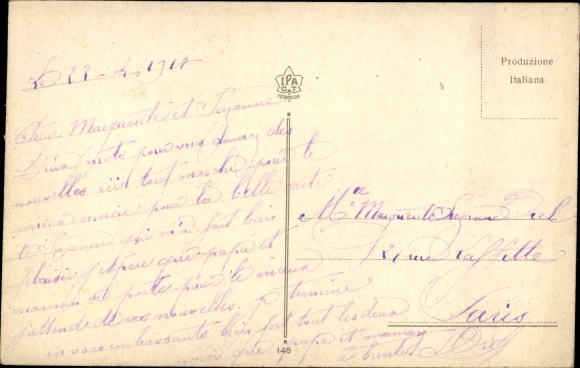 Le 22-4-1917
Chère Marguerite et Suzanne
Deux mots pour vous donner des
nouvelles ici tout marche pour le
mieux merci pour la belle carte
de Suzanne qui m'a fait bien
plaisir j'espère que papa et
maman se porte pour le mieux
j'attends de vos nouvelles. Je termine
en vous embrassants bien fort tout les deux
ainsi que papa et maman
à bientôt
IPA
C T
Produzione
Italiana
Mlle Marguerite Suzanne
21 rue Laffitte
Paris
146